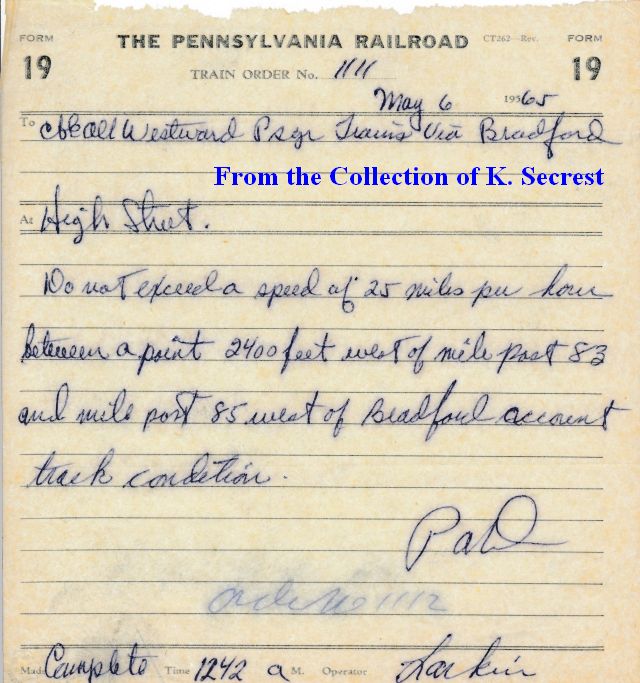 FORM 19
THE PENNSYLVANIA RAILROAD
CT262—Rev.
FORM 19
TRAIN ORDER No. 1111
May 6 195 65
To C&E All Westward Psgr Trains Via Bradford
From the Collection of K. Secrest
At High Street.
Do not exceed a speed of 25 miles per hour
between a point 2400 feet west of mile post 83
and mile post 85 west of Bradford account
track condition.
Order No 1112
Made Complete Time 1242 a M. Operator Larkin